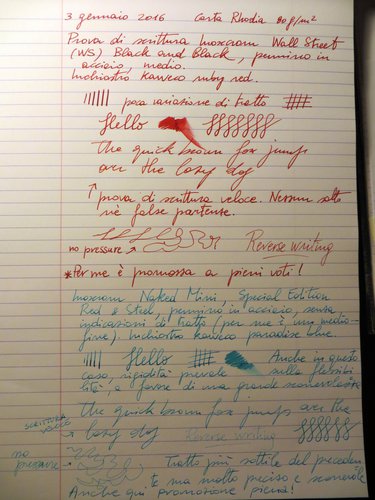 3 gennaio 2016 Carta Rhodia 80 g/m²
Prova di scrittura Inoxcrom Wall Street
(WS) Black and Black, pennino in
acciaio, medio.
Inchiostro Kaweco ruby red.
poca variazione di tratto
Hello
The quick brown fox jumps
over the lazy dog
↑ prova di scrittura veloce. Nessun salto
né false partenze.
no pressure → Reverse writing
*Per me è promossa a pieni voti!
Inoxcrom Naked Mini, Special Edition
Red & Steel, pennino in acciaio, senza
indicazioni di tratto (per me è un medio-
fine). Inchiostro Kaweco paradise blue.
Hello Anche in questo
caso, rigidità prevale sulla flessibi
lità, a favore di una grande scorrevolezza
SCRITTURA VELOCE The quick brown fox jumps over the
lazy dog Reverse writing
no pressure → Tratto più sottile del preceden
te ma molto preciso e scorrevole
Anche qui promozione piena!